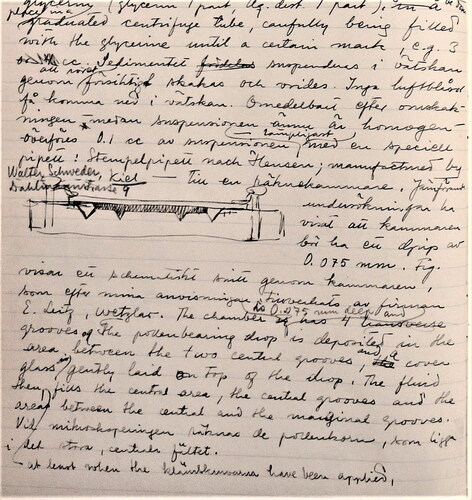 glycerin (glycerin 1 part, Aq. dest. 1 part). In a
graduated centrifuge tube, carefully being filled
with the glycerine until a certain mark, e.g. 3
cc. Sedimentet suspenderas i vätskan
genom försiktigt skakas och vrides. Inga luftblåsor
få komma ned i vätskan. Omedelbart efter omskak-
ningen – medan suspensionen ännu är homogen –
överföres 0.1 cc av suspensionen, med en speciell
pipett: Stempelpipett nach Hensen; manufactured by
Walter Schweder, Kiel — till en räknekammare. Jämförande
9 undersökningar ha
visat att kammaren
bör ha en djup av
0.075 mm. Fig.
visar ett schematiskt snitt genom kammaren,
som efter mina anvisningar tillverkats av firman
E. Leitz, Wetzlar. The chamber is 0.075 mm deep and has 4 transverse
grooves. The pollenbearing drop is deposited in the
area between the two central grooves, and a cover
glass gently laid on top of the drop. The fluid
then fills the central area, the central grooves and the
area between the central and the marginal grooves.
Vid mikroskoperingen räknas de pollenkorn, som ligga
i det stora, centrala fältet.
at least when the have been applied,